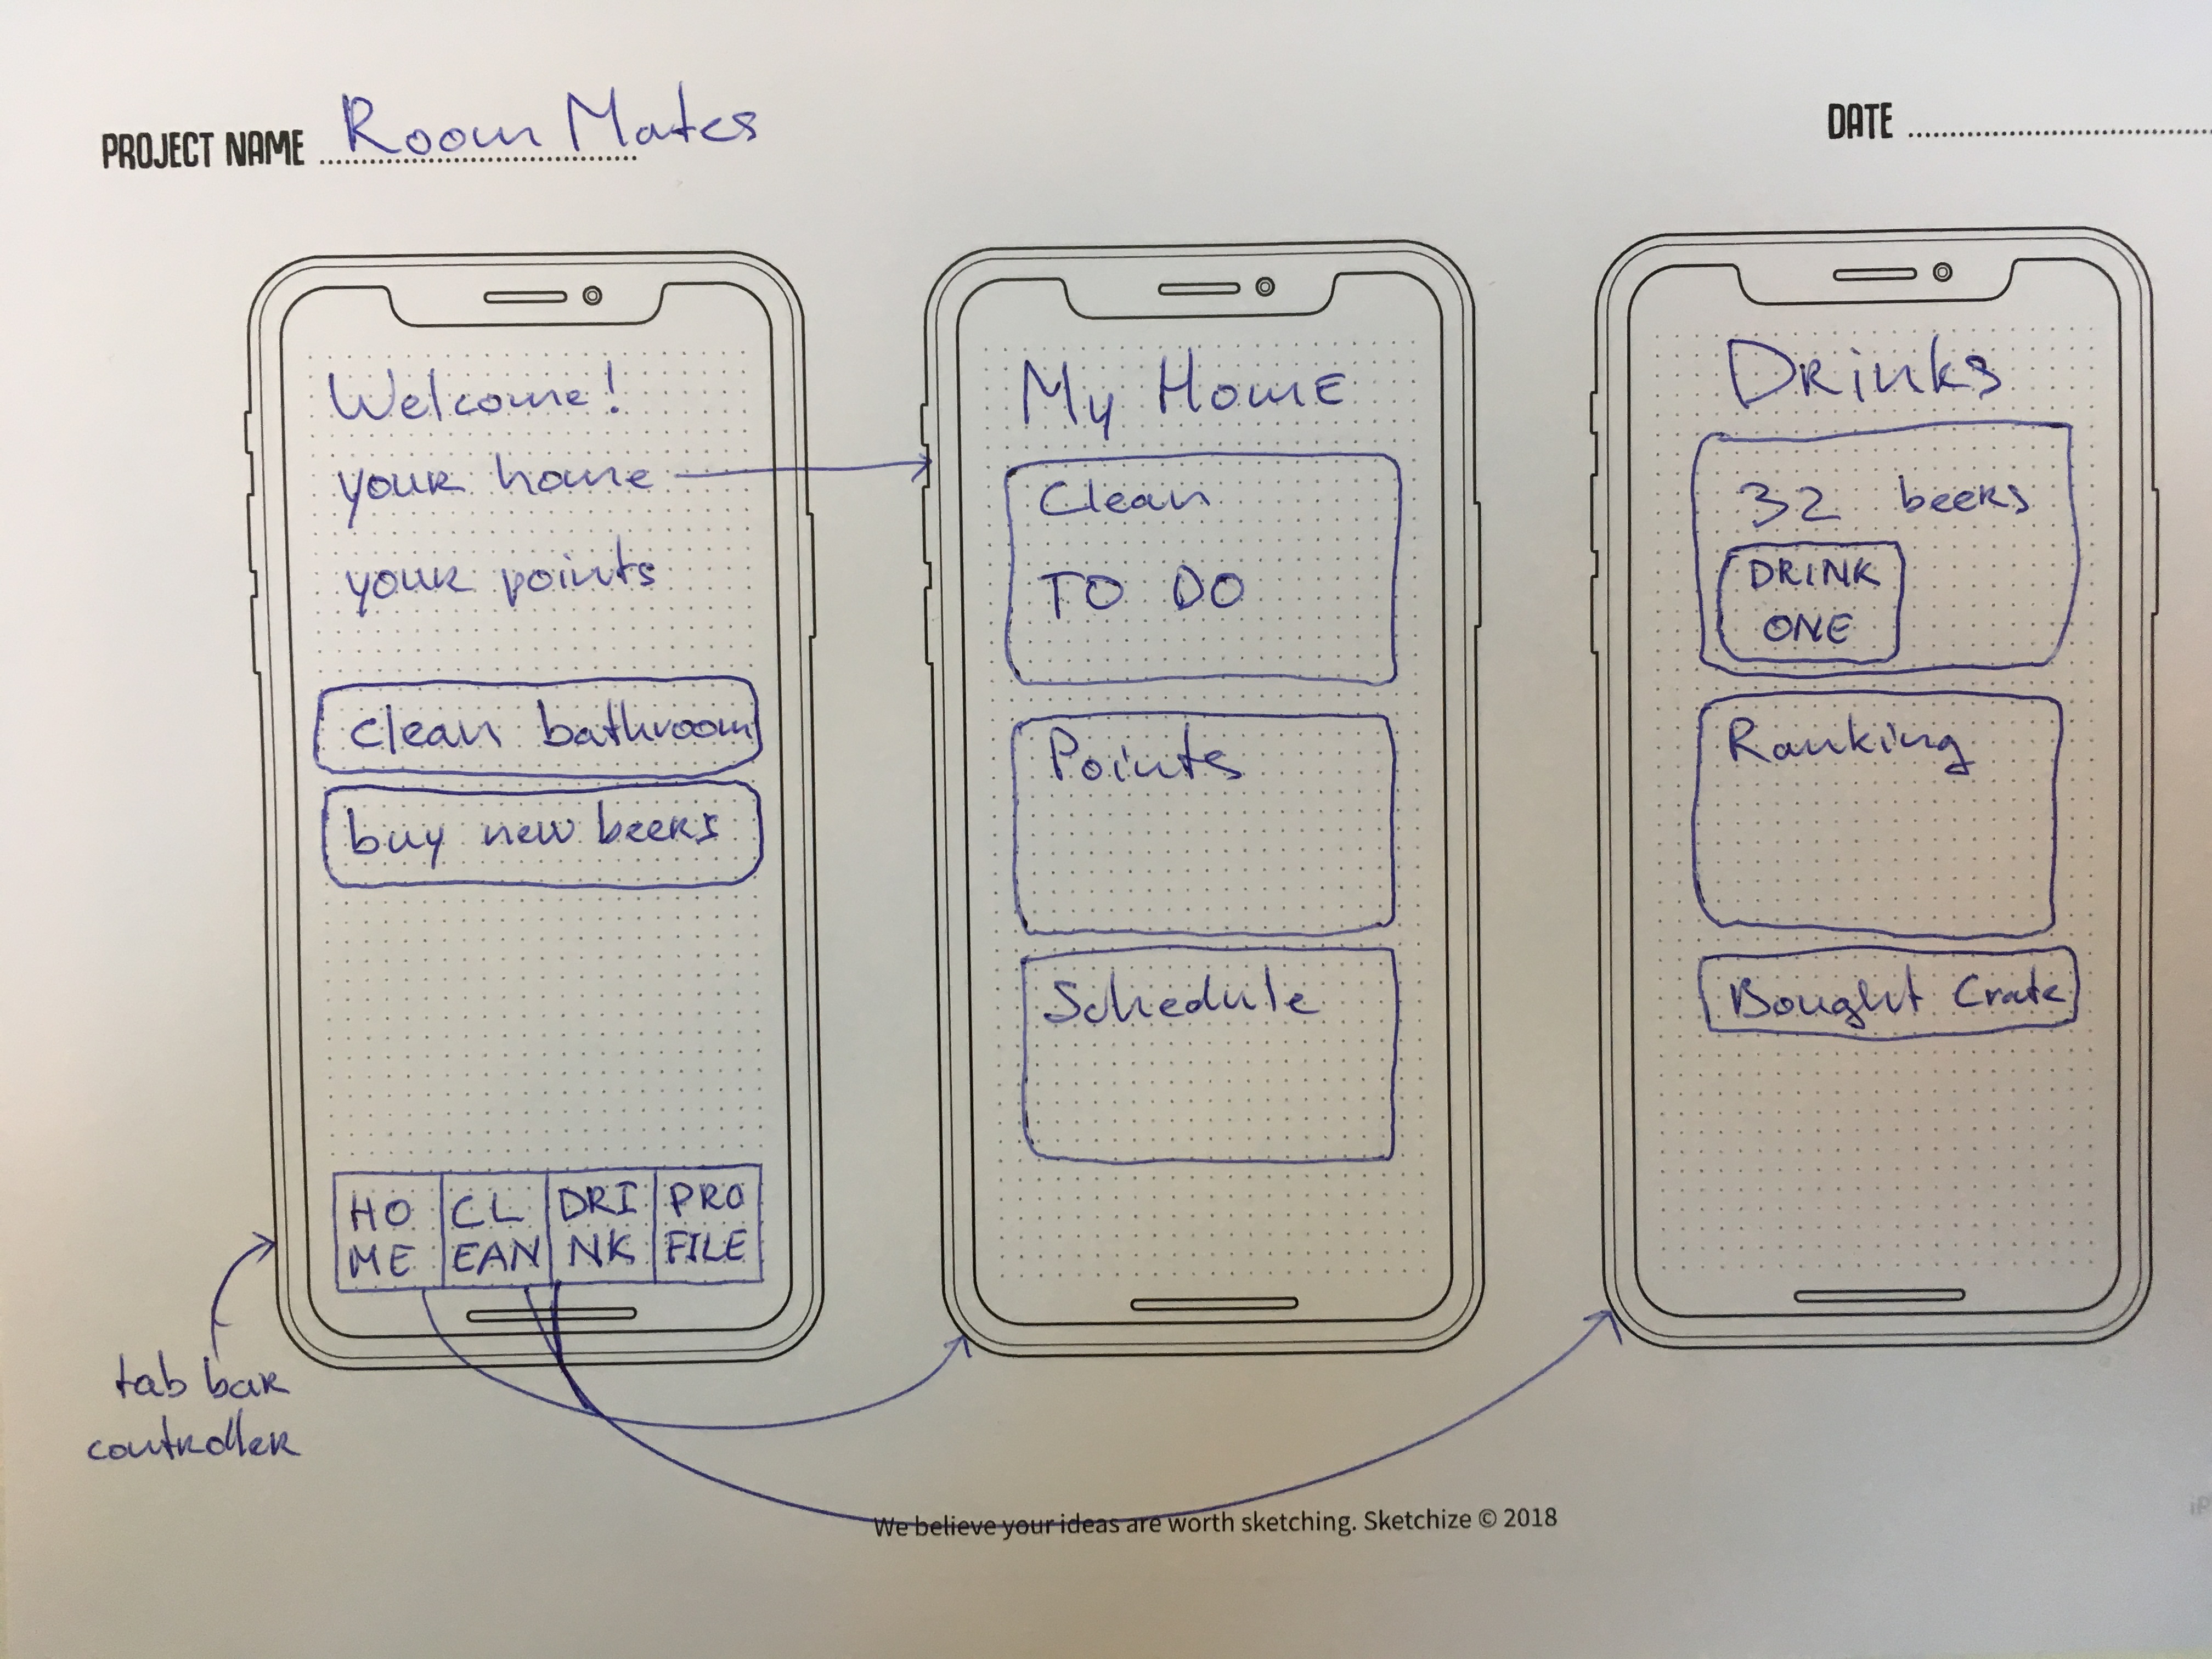 PROJECT NAME Room Mates
DATE
Welcome!
your home
your points
clean bathroom
buy new beers
HO
ME
CL
EAN
DRI
NK
PRO
FILE
tab bar
controller
My Home
Clean
TO DO
Points
Schedule
Drinks
32 beers
DRINK
ONE
Ranking
Bought Crate
We believe your ideas are worth sketching. Sketchize © 2018